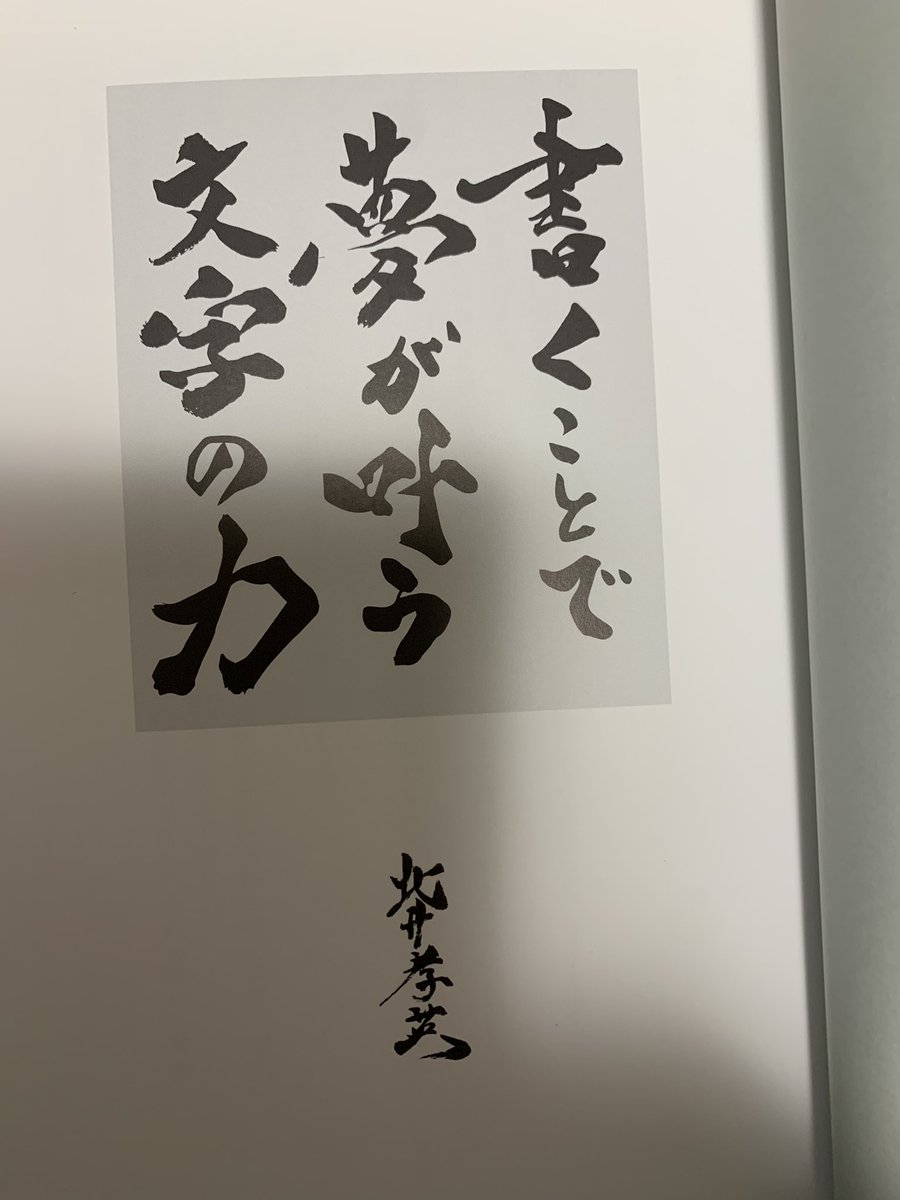 書くことで
夢が叶う
文字の力
北井孝英